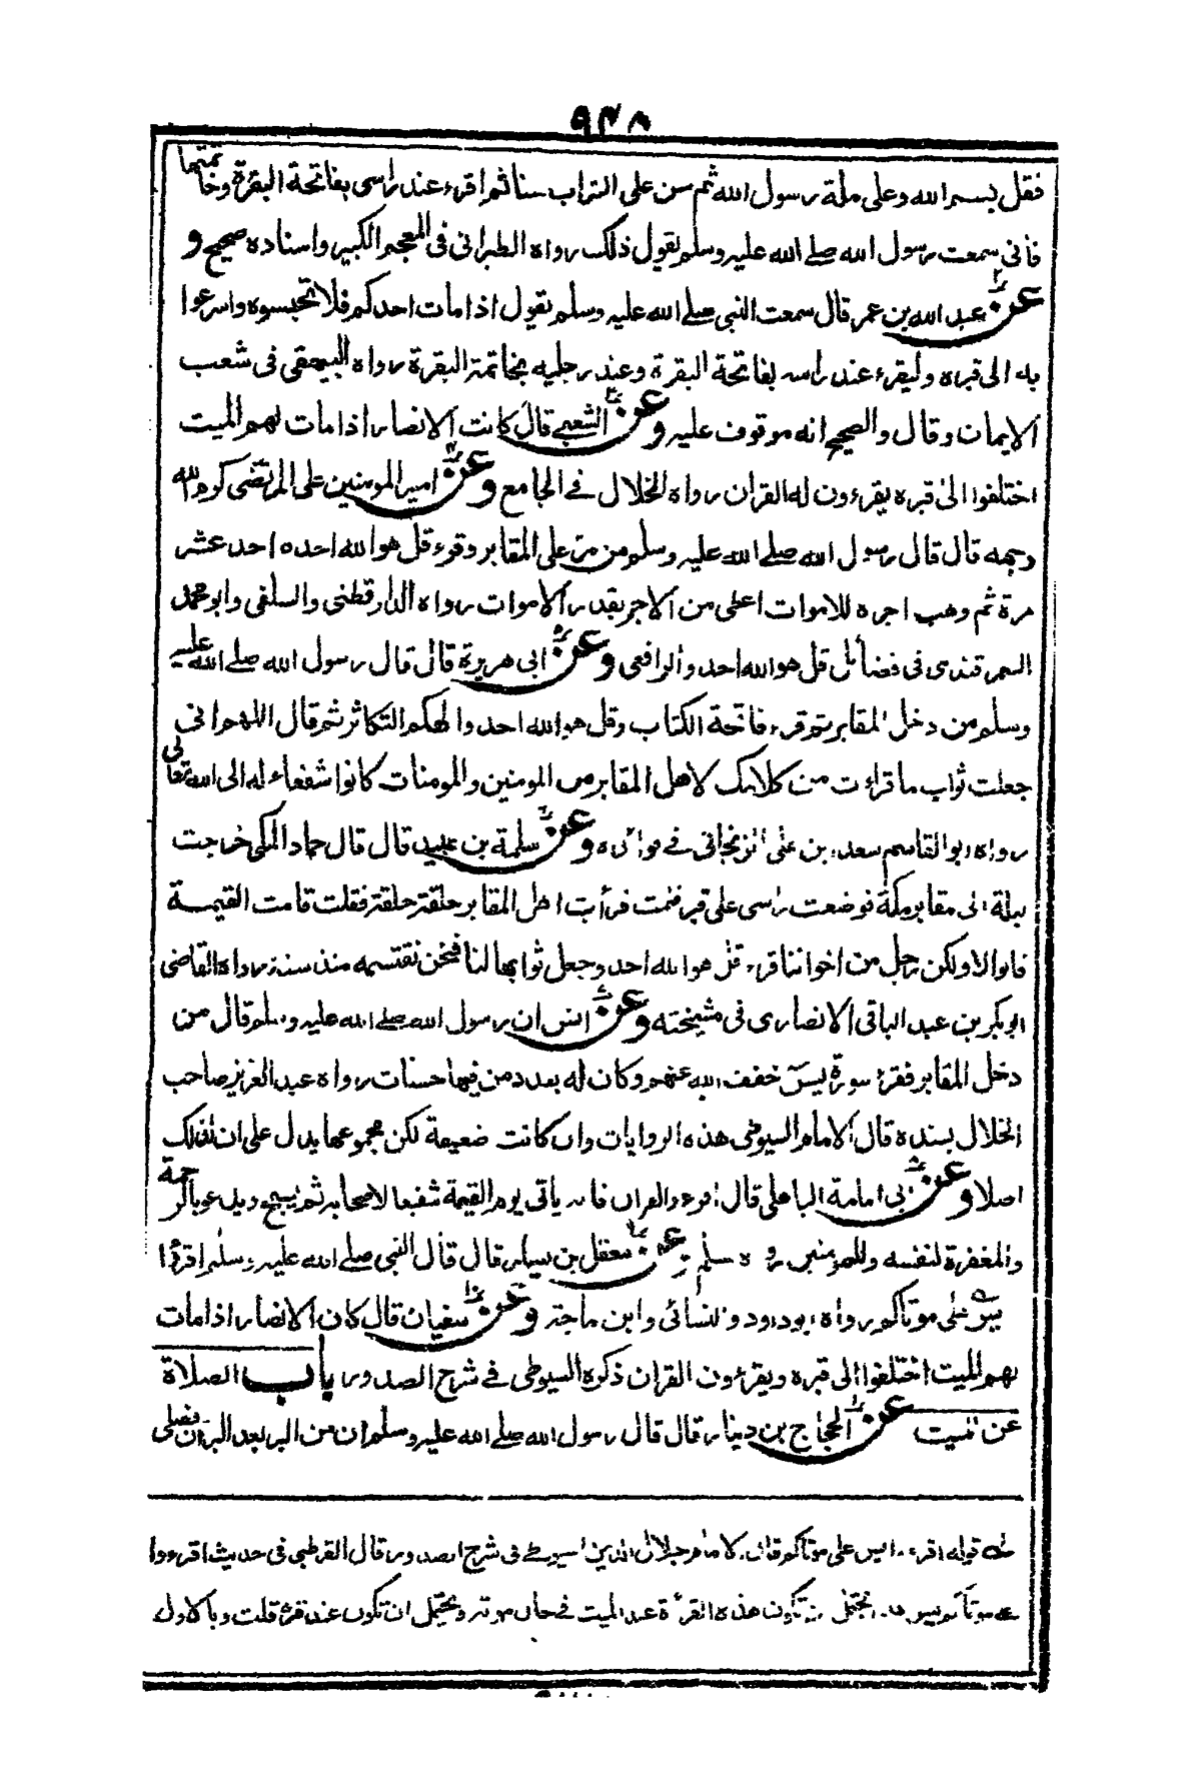 ٩٣٨
فقل بسم الله وعلى ملة رسول الله ثم سن على التراب سنا ثم اقرء عند راسى بفاتحة البقرة وخاتمتها
فانى سمعت رسول الله صلے الله عليه وسلم يقول ذلك رواه الطبرانى فى المعجم الكبير واسناده صحيح و
عن عبد الله بن عمر قال سمعت النبى صلے الله عليه وسلم يقول اذا مات احدكم فلا تحبسوه واسرعوا
به الى قبره وليقرء عند راسه بفاتحة البقرة وعند رجليه بخاتمة البقرة رواه البيهقى فى شعب
الايمان وقال والصحيح انه موقوف عليه وعن الشعبے قال كانت الانصار اذا مات لهم الميت
اختلفوا الى قبره يقرءون له القران رواه الخلال فے الجامع وعن امير المومنين على المرتضى كرم الله
وجهه قال قال رسول الله صلے الله عليه وسلم من مر على المقابر وقرء قل هو الله احد احد عشر
مرة ثم وهب اجره للاموات اعطى من الاجر بقدر الاموات رواه الدارقطنى والسلفى وابو محمد
السمرقندى فى فضائل قل هو الله احد والرافعى وعن ابى هريرة قال قال رسول الله صلے الله عليه
وسلم من دخل المقابر ثم قرء فاتحة الكتاب وقل هو الله احد والهكم التكاثر ثم قال اللهم انى
جعلت ثواب ما قراءت من كلامك لاهل المقابر من المومنين والمومنات كانوا شفعاء له الى الله تعالى
رواه ابو القاسم سعد بن على الزنجانى فے فوائده وعن سلمة بن عبيد قال قال حماد المكى خرجت
ليلة الى مقابر مكة فوضعت راسى على قبر فنمت فرأيت اهل المقابر حلقة حلقة فقلت قامت القيمة
قالوا لا ولكن رجل من اخواننا قرء قل هو الله احد وجعل ثوابها لنا فنحن نقتسمه منذ سنة رواه القاضى
ابو بكر بن عبد الباقى الانصارى فى مشيخته وعن انس ان رسول الله صلے الله عليه وسلم قال من
دخل المقابر فقرء سورة يٰسٓ خفف الله عنهم وكان له بعدد من فيها حسنات رواه عبد العزيز صاحب
الخلال بسنده قال الامام السيوطى هذه الروايات وان كانت ضعيفة لكن مجموعها يدل على ان لذلك
اصلا وعن ابى امامة الباهلى قال اقرءوا القران فانه ياتى يوم القيمة شفيعا لاصحابه ثم يسبح ويدعو بالرحمة
والمغفرة لنفسه وللمومنين رواه مسلم وعن معقل بن يسار قال قال النبى صلے الله عليه وسلم اقرؤا
يٰسٓ على موتاكم رواه ابوداود والنسائى وابن ماجة وعن سفيان قال كان الانصار اذا مات
لهم الميت اختلفوا الى قبره ويقرءون القران ذكره السيوطى فے شرح الصدور باب الصلاة
عن الميت عن الحجاج بن دينار قال قال رسول الله صلے الله عليه وسلم ان من البر بعد البر ان تصلى
قوله اقرء يس على موتاكم قال الامام جلال الدين السيوطے فى شرح الصدور قال القرطبى فى حديث اقرءوا
على موتاكم يس هذا يحتمل ان تكون هذه القرأة عند الميت فے حال موته ويحتمل ان تكون عند قبره قلت وبالاول